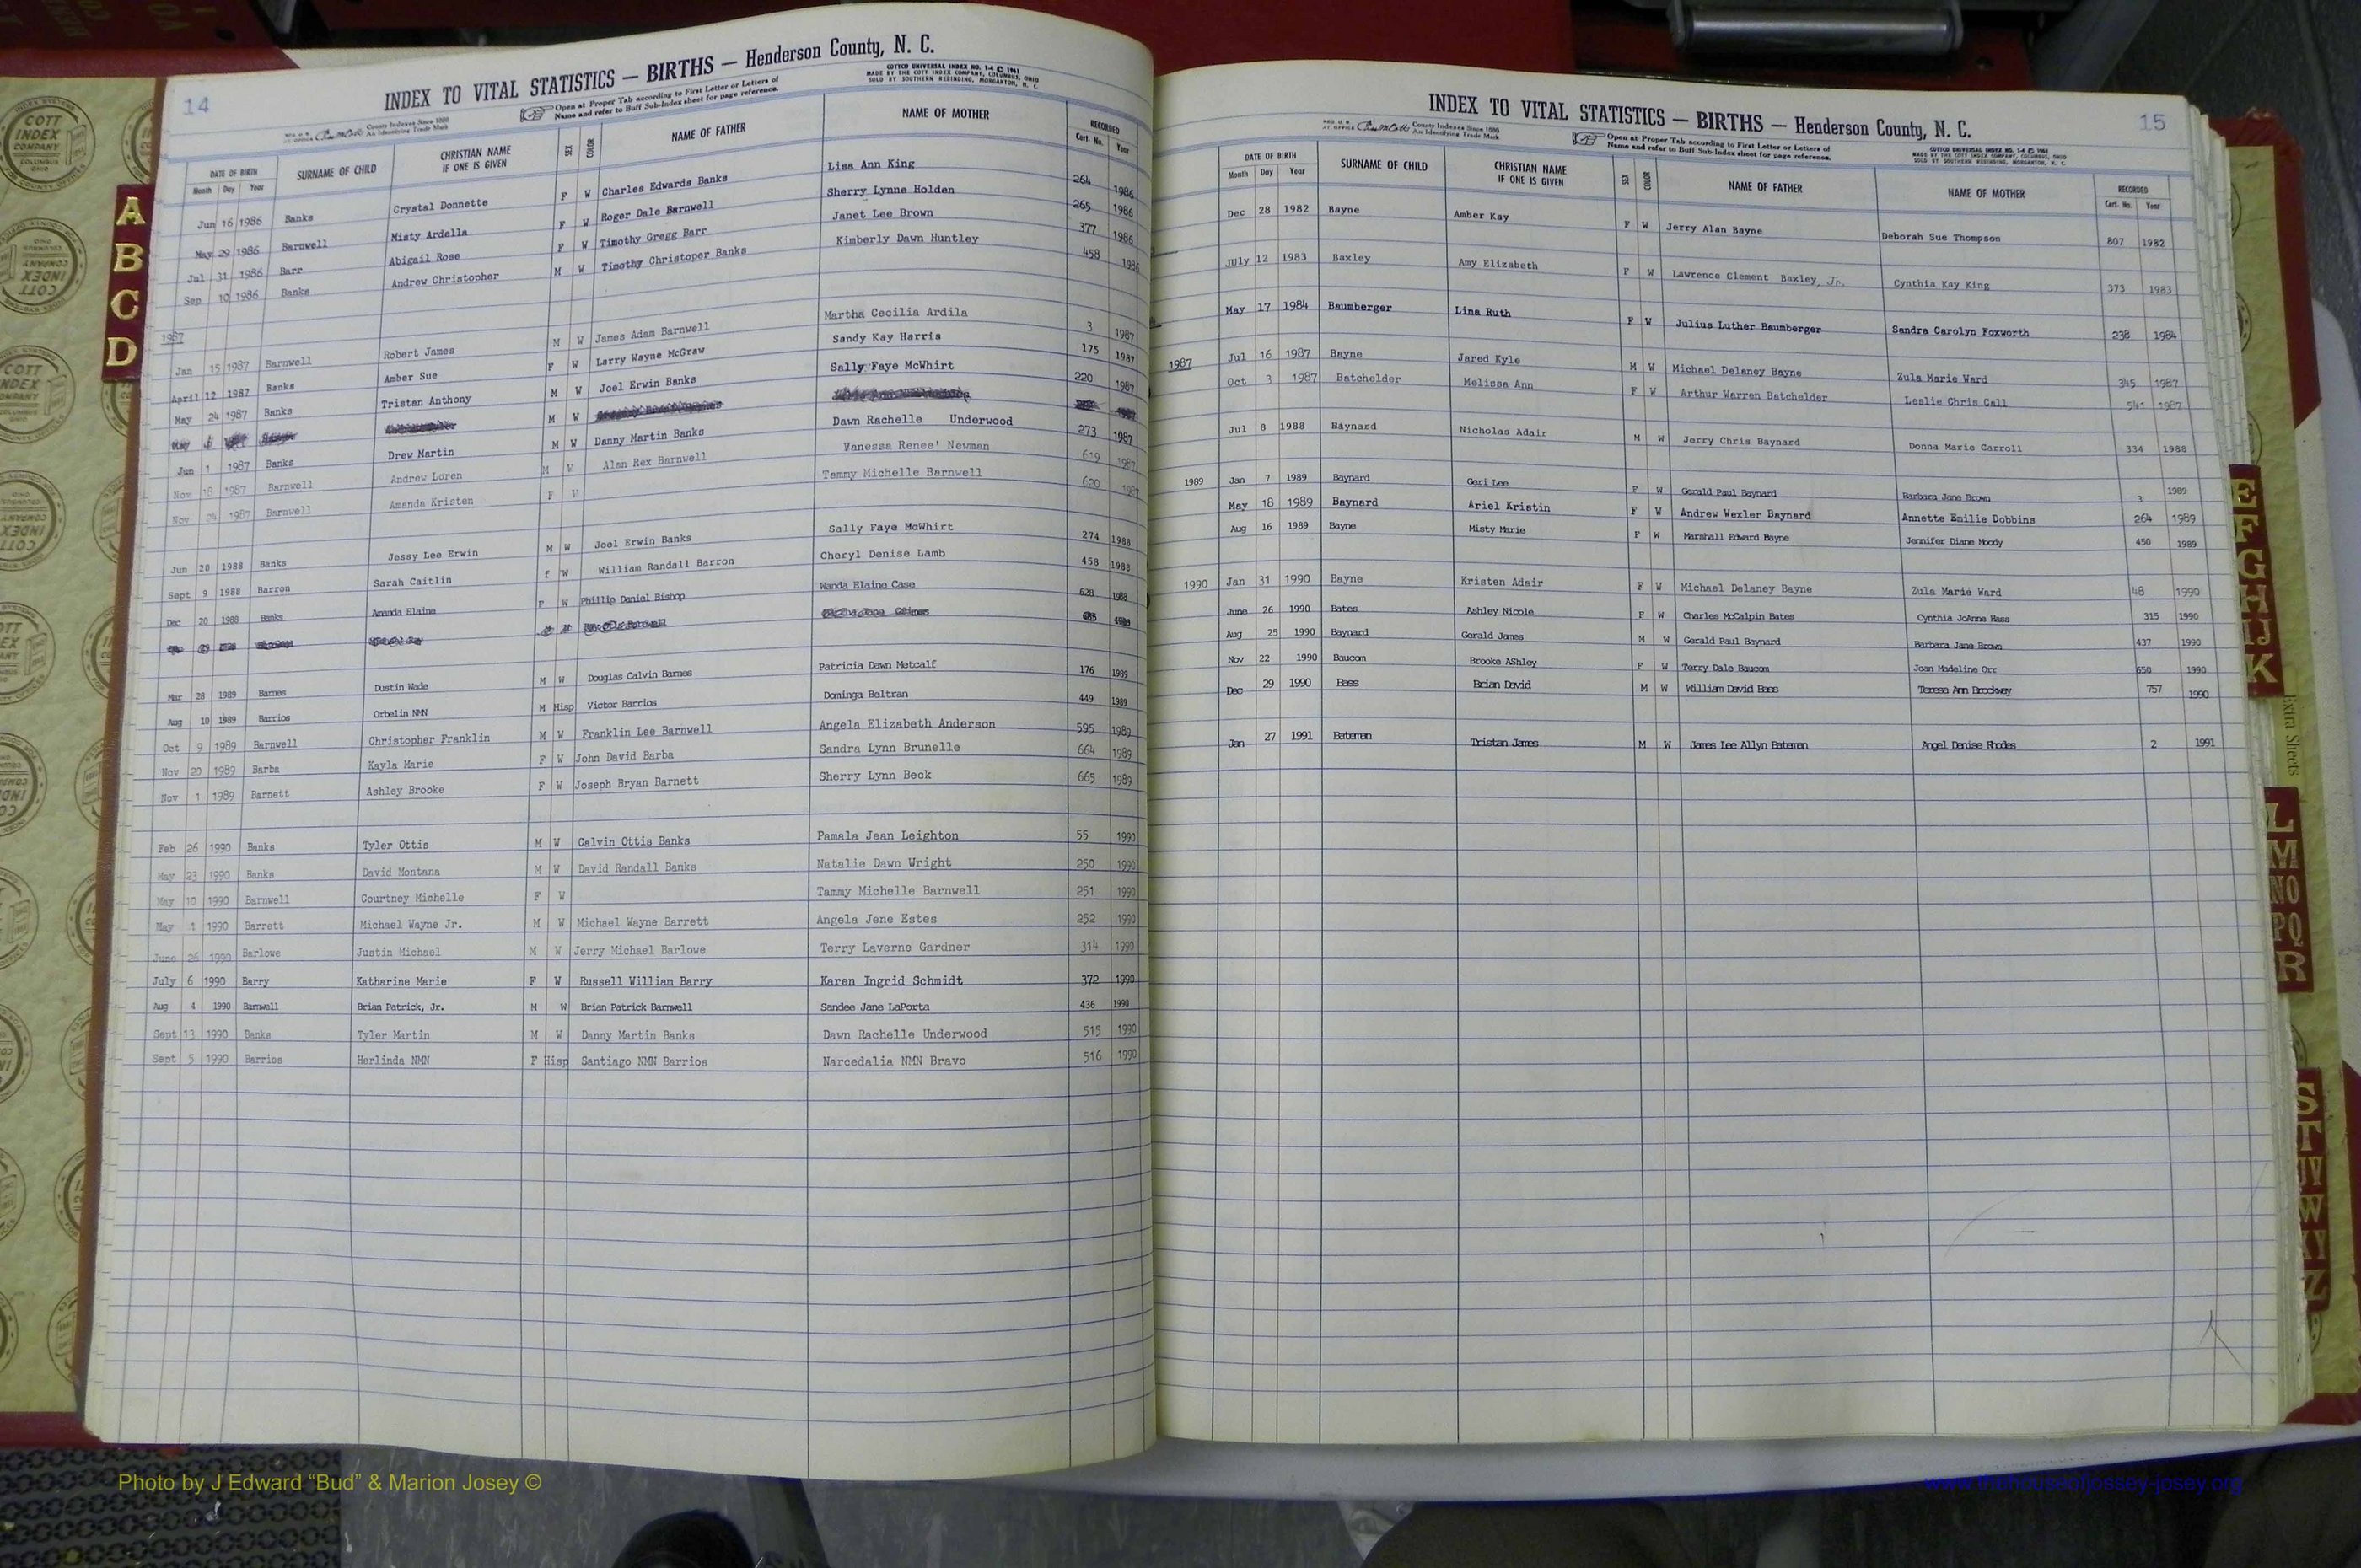 14
INDEX TO VITAL STATISTICS — BIRTHS — Henderson County, N. C.
COTTCO UNIVERSAL INDEX NO. 1-4 © 1961
MADE BY THE COTT INDEX COMPANY, COLUMBUS, OHIO
SOLD BY SOUTHERN REBINDING, MORGANTON, N. C.
County Indexes Since 1888
An Identifying Trade Mark
Open at Proper Tab according to First Letter or Letters of
Name and refer to Buff Sub-Index sheet for page reference.
DATE OF BIRTH SURNAME OF CHILD CHRISTIAN NAME IF ONE IS GIVEN SEX COLOR NAME OF FATHER NAME OF MOTHER RECORDED
Month Day Year Cert. No. Year
Jun 16 1986 Banks Crystal Donnette F W Charles Edwards Banks Lisa Ann King 264 1986
May 29 1986 Barnwell Misty Ardella F W Roger Dale Barnwell Sherry Lynne Holden 265 1986
Jul 31 1986 Barr Abigail Rose F W Timothy Gregg Barr Janet Lee Brown 377 1986
Sep 10 1986 Banks Andrew Christopher M W Timothy Christoper Banks Kimberly Dawn Huntley 458 1986
1987
Jan 15 1987 Barnwell Robert James M W James Adam Barnwell Martha Cecilia Ardila 3 1987
April 12 1987 Banks Amber Sue F W Larry Wayne McGraw Sandy Kay Harris 175 1987
May 24 1987 Banks Tristan Anthony M W Joel Erwin Banks Sally Faye McWhirt 220 1987
May M W
Jun 1 1987 Banks Drew Martin M W Danny Martin Banks Dawn Rachelle Underwood 273 1987
Nov 18 1987 Barnwell Andrew Loren M W Alan Rex Barnwell Vanessa Renee' Newman 619 1987
Nov 24 1987 Barnwell Amanda Kristen F W Tammy Michelle Barnwell 620 1987
Jun 20 1988 Banks Jessy Lee Erwin M W Joel Erwin Banks Sally Faye McWhirt 274 1988
Sept 9 1988 Barron Sarah Caitlin f W William Randall Barron Cheryl Denise Lamb 458 1988
Dec 20 1988 Banks Amanda Elaine F W Phillip Daniel Bishop Wanda Elaine Case 628 1988
Mar 28 1989 Barnes Dustin Wade M W Douglas Calvin Barnes Patricia Dawn Metcalf 176 1989
Aug 10 1989 Barrios Orbelin NMN M Hisp Victor Barrios Dominga Beltran 449 1989
Oct 9 1989 Barnwell Christopher Franklin M W Franklin Lee Barnwell Angela Elizabeth Anderson 595 1989
Nov 20 1989 Barba Kayla Marie F W John David Barba Sandra Lynn Brunelle 664 1989
Nov 1 1989 Barnett Ashley Brooke F W Joseph Bryan Barnett Sherry Lynn Beck 665 1989
Feb 26 1990 Banks Tyler Ottis M W Calvin Ottis Banks Pamala Jean Leighton 55 1990
May 23 1990 Banks David Montana M W David Randall Banks Natalie Dawn Wright 250 1990
May 10 1990 Barnwell Courtney Michelle F W Tammy Michelle Barnwell 251 1990
May 1 1990 Barrett Michael Wayne Jr. M W Michael Wayne Barrett Angela Jene Estes 252 1990
June 26 1990 Barlowe Justin Michael M W Jerry Michael Barlowe Terry Laverne Gardner 314 1990
July 6 1990 Barry Katharine Marie F W Russell William Barry Karen Ingrid Schmidt 372 1990
Aug 4 1990 Barnwell Brian Patrick, Jr. M W Brian Patrick Barnwell Sandee Jane LaPorta 436 1990
Sept 13 1990 Banks Tyler Martin M W Danny Martin Banks Dawn Rachelle Underwood 515 1990
Sept 5 1990 Barrios Herlinda NMN F Hisp Santiago NMN Barrios Narcedalia NMN Bravo 516 1990
15
INDEX TO VITAL STATISTICS — BIRTHS — Henderson County, N. C.
County Indexes Since 1888
An Identifying Trade Mark
Open at Proper Tab according to First Letter or Letters of
Name and refer to Buff Sub-Index sheet for page reference.
COTTCO UNIVERSAL INDEX NO. 1-4 © 1961
MADE BY THE COTT INDEX COMPANY, COLUMBUS, OHIO
SOLD BY SOUTHERN REBINDING, MORGANTON, N. C.
DATE OF BIRTH SURNAME OF CHILD CHRISTIAN NAME IF ONE IS GIVEN SEX COLOR NAME OF FATHER NAME OF MOTHER RECORDED
Month Day Year Cert. No. Year
Dec 28 1982 Bayne Amber Kay F W Jerry Alan Bayne Deborah Sue Thompson 807 1982
JUly 12 1983 Baxley Amy Elizabeth F W Lawrence Clement Baxley, Jr. Cynthia Kay King 373 1983
May 17 1984 Baumberger Lina Ruth F W Julius Luther Baumberger Sandra Carolyn Foxworth 238 1984
1987 Jul 16 1987 Bayne Jared Kyle M W Michael Delaney Bayne Zula Marie Ward 345 1987
Oct 3 1987 Batchelder Melissa Ann F W Arthur Warren Batchelder Leslie Chris Call 541 1987
Jul 8 1988 Baynard Nicholas Adair M W Jerry Chris Baynard Donna Marie Carroll 334 1988
1989 Jan 7 1989 Baynard Geri Lee F W Gerald Paul Baynard Barbara Jane Brown 3 1989
May 18 1989 Baynard Ariel Kristin F W Andrew Wexler Baynard Annette Emilie Dobbins 264 1989
Aug 16 1989 Bayne Misty Marie F W Marshall Edward Bayne Jennifer Diane Moody 450 1989
1990 Jan 31 1990 Bayne Kristen Adair F W Michael Delaney Bayne Zula Marie Ward 48 1990
June 26 1990 Bates Ashley Nicole F W Charles McCalpin Bates Cynthia JoAnne Hass 315 1990
Aug 25 1990 Baynard Gerald James M W Gerald Paul Baynard Barbara Jane Brown 437 1990
Nov 22 1990 Baucom Brooke AShley F W Terry Dale Baucom Joan Madeline Orr 650 1990
Dec 29 1990 Bass Brian David M W William David Bass Teresa Ann Brockway 757 1990
Jan 27 1991 Bateman Tristan James M W James Lee Allyn Bateman Angel Denise Rhodes 2 1991
A
B
C
D
E
F
G
H
IJ
K
Extra Sheets
L
M
NO
PQ
R
S
T
UV
W
XY
Z
COTT
INDEX
COMPANY
COLUMBUS
OHIO
Photo by J Edward “Bud” & Marion Josey ©
www.thehouseofjossey-josey.org